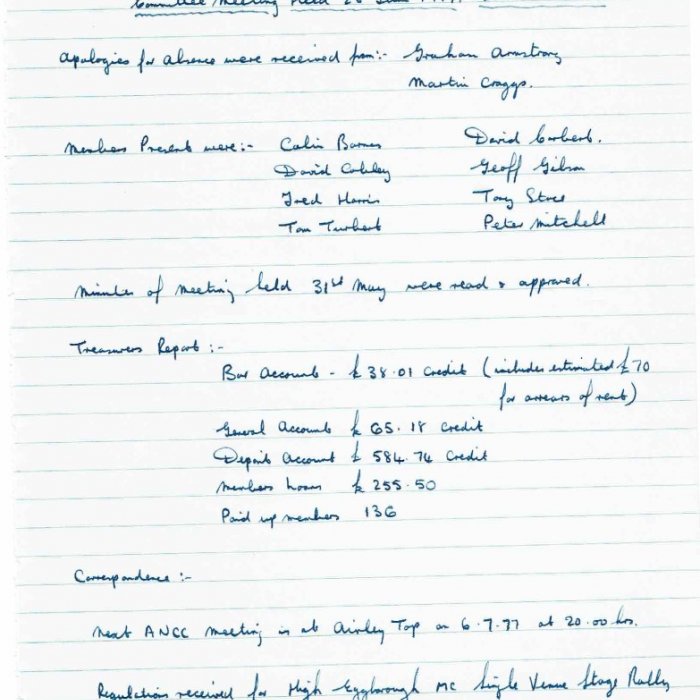 Committee Meeting held
Apologies for absence were received from:- Graham Armstrong
Martin Craggs.
Members Present were:- Colin Barnes David Corbert.
David Cobley Geoff Gibson
Fred Harris Tony
Tom Turnbert Peter Mitchell
Minutes of meeting held 31st May were read & approved.
Treasurers Report:-
Bar Accounts - £38.01 Credit (includes estimated £70
for arrears of rent)
General Accounts £65.18 Credit
Deposit Account £584.74 Credit
Members loans £255.50
Paid up members 136
Correspondence:-
Next ANCC meeting is at Ainley Top on 6.7.77 at 20.00hrs.
Regulations received for High Eggborough MC Single Venue Stage Rally